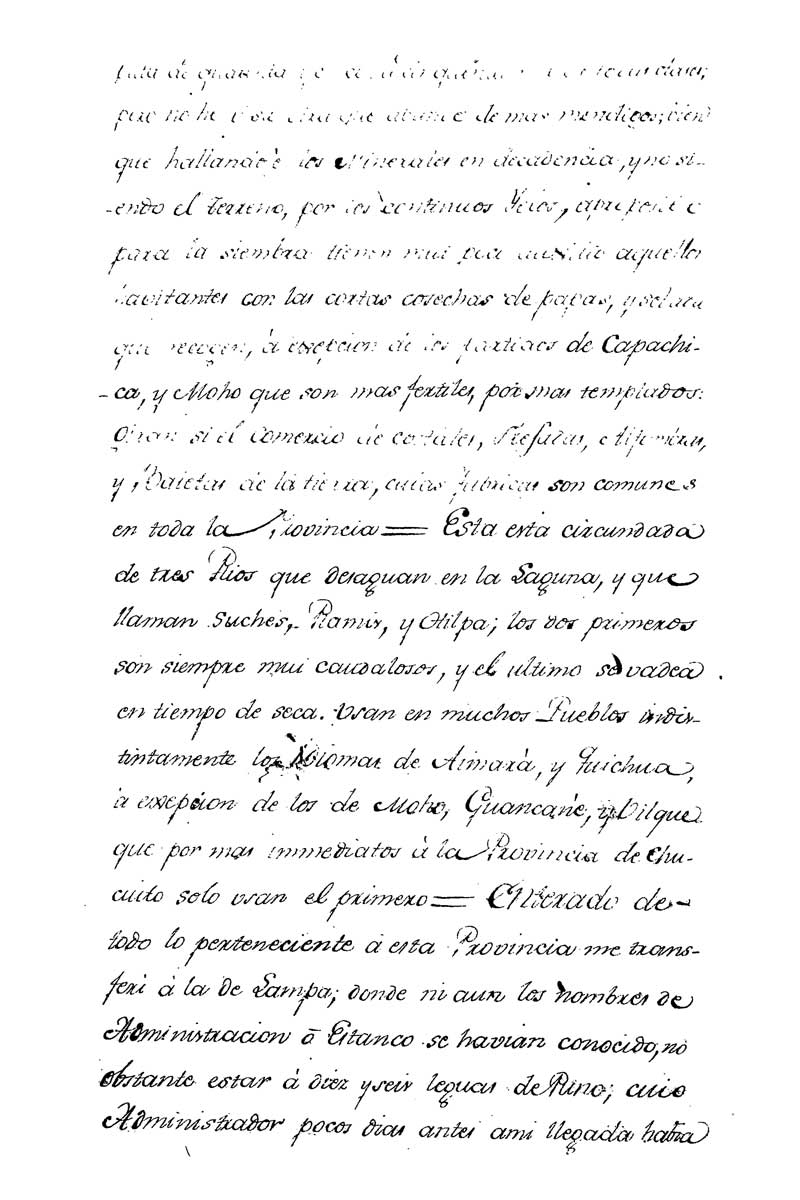 de
pero no he que de mas mendigos; bien
que hallandose los Minerales en decadencia, y no si-
-endo el terreno, por los continuos Yelos, aproposito
para la siembra tienen mui aquellos
havitantes con las cortas cosechas de papas, y
que recogen, à exepcion de los partidos de Capachi-
-ca, y Moho que son mas fertiles, por mas templados:
Giran si el Comercio de costales, Alfombras,
y Baietas de la tierra, cuias fabricas son comunes
en toda la Provincia = Esta està circundada
de tres Rios que desaguan en la Laguna, y que
llaman Suches, Ramis, y Ylilpa; los dos primeros
son siempre mui caudalosos, y el ultimo se vadea
en tiempo de seca. Vsan en muchos Pueblos indis-
tintamente los Idiomas de Aimarà, y Quichua,
à exepcion de los de Moho, Guancanè, y Vilque
que por mas immediatos à la Provincia de Chu-
cuito solo vsan el primero = Enterado de
todo lo perteneciente à esta Provincia me trans-
feri à la de Lampa; donde ni aun los nombres de
Administracion ò Estanco se havian conocido, no
obstante estar à diez y seis leguas de Puno; cuio
Administrador pocos dias antes a mi llegada havia